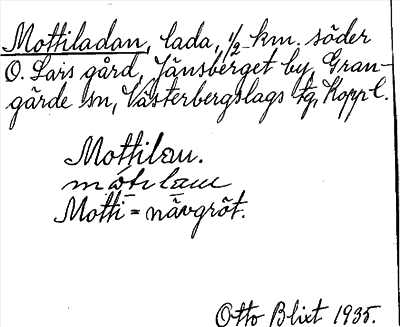 Mottiladan, lada, ½ km. söder
O. Lars gård, Jänsberget by, Gran-
gärde sn, Västerbergslags tg, Kopp l.
Mottilau.
Motti = nävgröt.
Otto Blixt 1935.